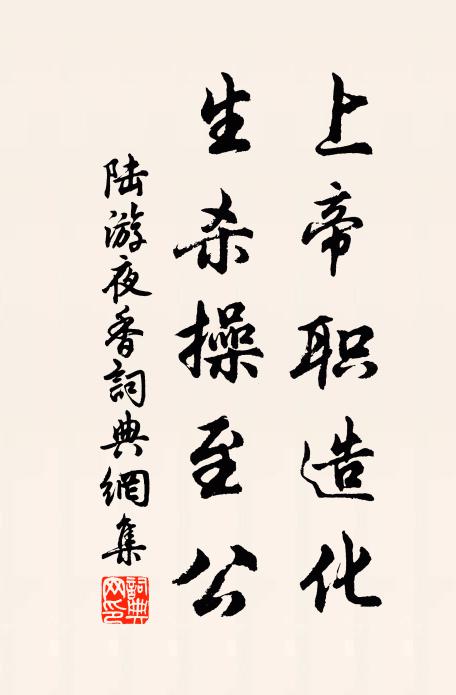 上帝职造化
生杀操至公
陆游夜香詞典網集
詞典网印